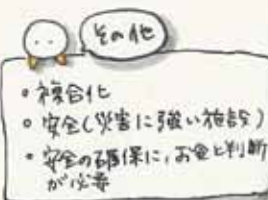 その他
・複合化
・安全(災害に強い施設)
・安全の確保に、お金と判断
が必要